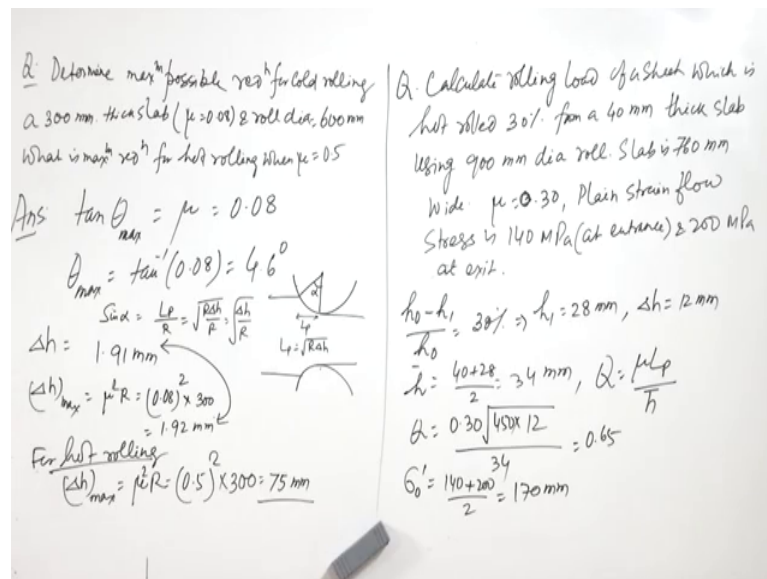 Q. Determine max^m possible red^n for cold rolling
a 300 mm. thick slab (μ=0.08) & roll dia. 600 mm
What is max^m red^n for hot rolling when μ=0.5
Ans tan θ_max = μ = 0.08
θ_max = tan⁻¹(0.08) = 4.6°
Sin α = Lp/R = √(RΔh)/R = √(Δh/R)
α
Lp
Lp = √(RΔh)
Δh = 1.91 mm
(Δh)_max = μ²R = (0.08)² × 300
= 1.92 mm
For hot rolling
(Δh)_max = μ²R = (0.5)² × 300 = 75 mm
Q. Calculate rolling load of a sheet which is
hot rolled 30% from a 40 mm thick slab
using 900 mm dia roll. Slab is 760 mm
wide. μ = 0.30, Plain strain flow
stress is 140 MPa (at entrance) & 200 MPa
at exit.
(h₀-h₁)/h₀ = 30% ⇒ h₁ = 28 mm, Δh = 12 mm
h̄ = (40+28)/2 = 34 mm, Q = μLp/h̄
Q = 0.30√(450×12)/34 = 0.65
σ₀' = (140+200)/2 = 170 mm